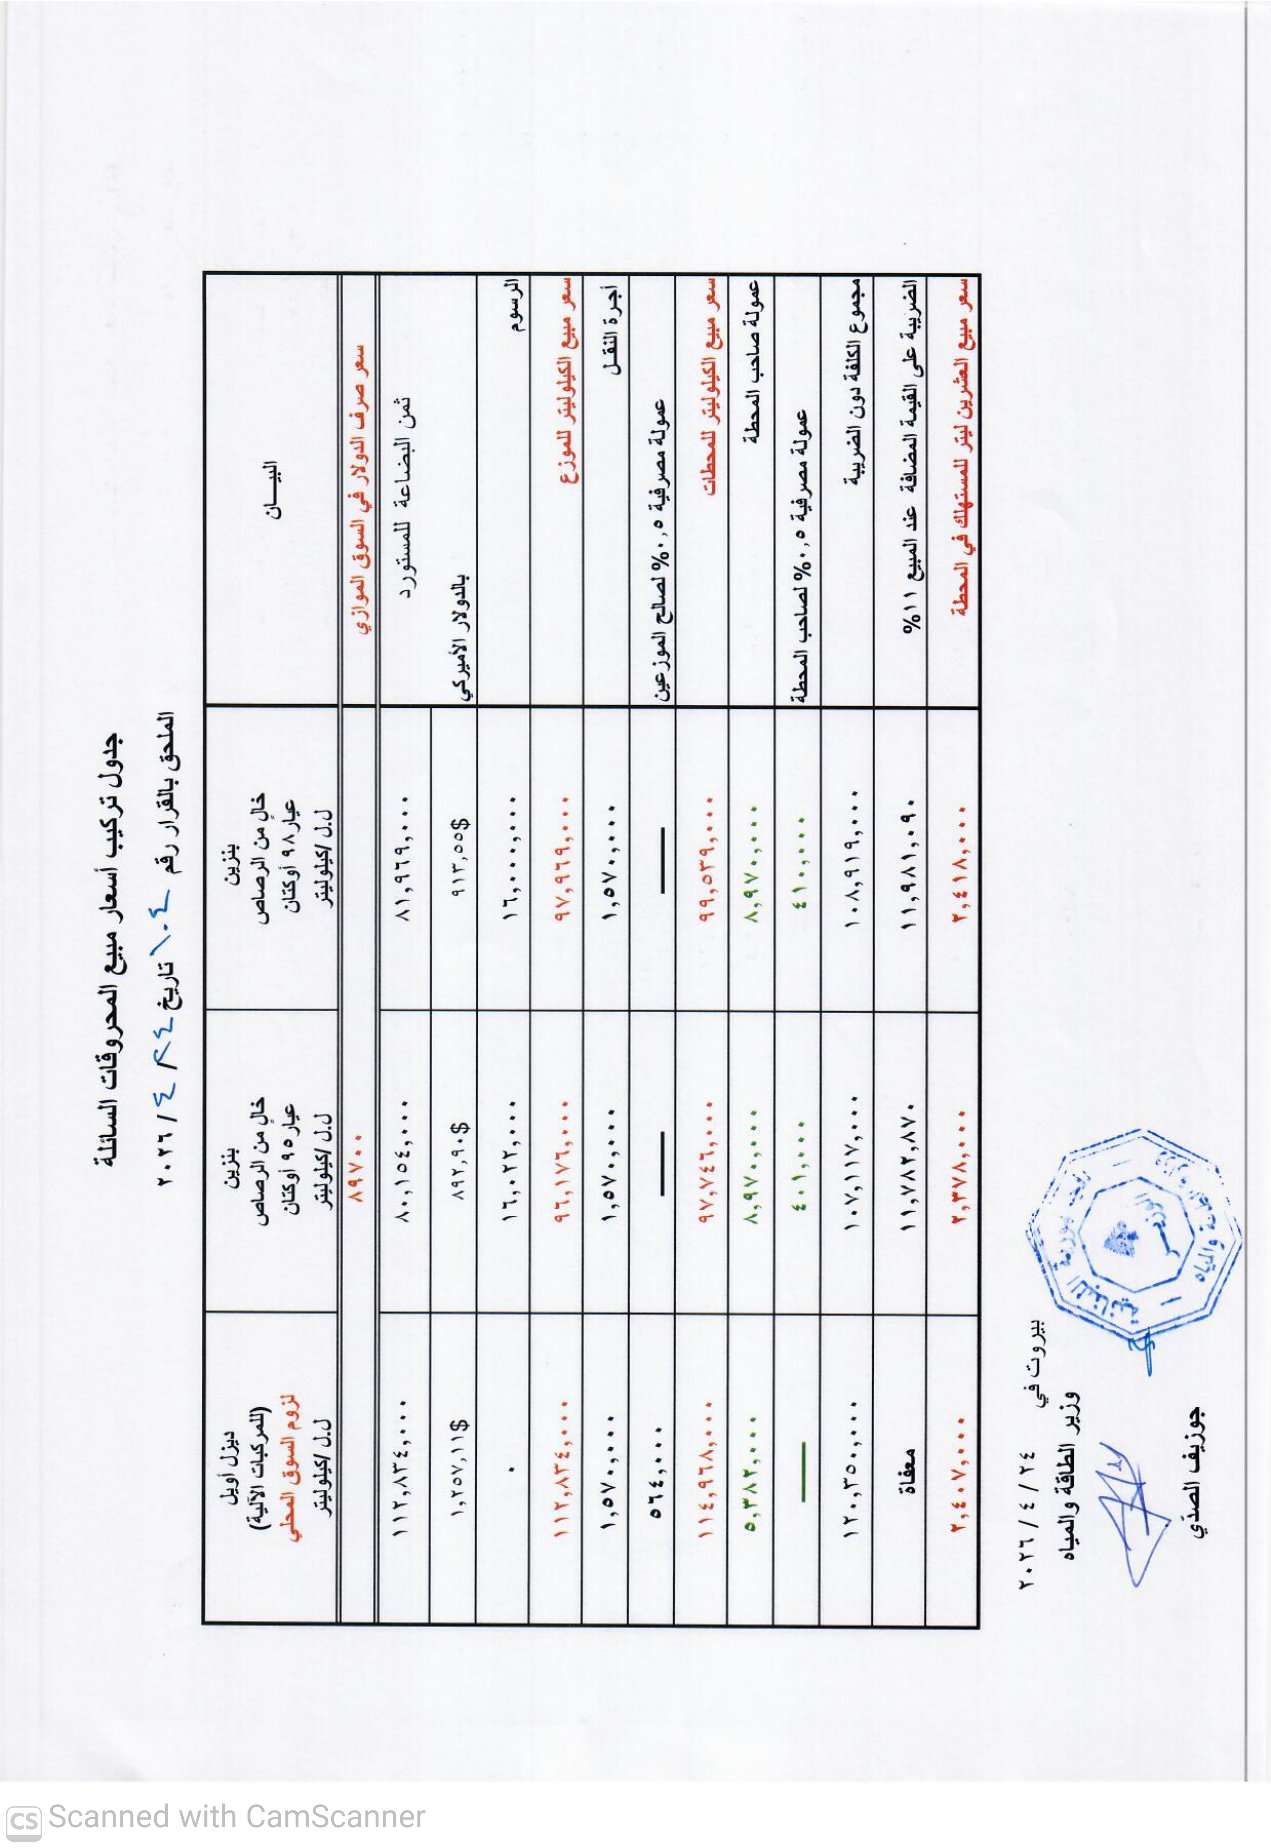 جدول تركيب أسعار مبيع المحروقات السائلة
الملحق بالقرار رقم ١٠٤ تاريخ ٢٤ / ٤ / ٢٠٢٦
البيـــان
بنزين
خالٍ من الرصاص
عيار ٩٨ أوكتان
ل.ل /كيلوليتر
بنزين
خالٍ من الرصاص
عيار ٩٥ أوكتان
ل.ل/كيلوليتر
ديزل أويل
(للمركبات الآلية)
لزوم السوق المحلي
ل.ل /كيلوليتر
سعر صرف الدولار في السوق الموازي ٨٩٧٠٠
ثمن البضاعة للمستورد ٨١,٩٦٩,٠٠٠ ٨٠,١٥٤,٠٠٠ ١١٢,٨٣٤,٠٠٠
بالدولار الأميركي ٩١٣,٥٥$ ٨٩٢,٩٠$ ١,٢٥٧,١١$
الرسوم ١٦,٠٠٠,٠٠٠ ١٦,٠٢٢,٠٠٠ ٠
سعر مبيع الكيلوليتر للموزع ٩٧,٩٦٩,٠٠٠ ٩٦,١٧٦,٠٠٠ ١١٢,٨٣٤,٠٠٠
أجرة النقـل ١,٥٧٠,٠٠٠ ١,٥٧٠,٠٠٠ ١,٥٧٠,٠٠٠
عمولة مصرفية ٠,٥% لصالح الموزعين — — ٥٦٤,٠٠٠
سعر مبيع الكيلوليتر للمحطات ٩٩,٥٣٩,٠٠٠ ٩٧,٧٤٦,٠٠٠ ١١٤,٩٦٨,٠٠٠
عمولة صاحب المحطة ٨,٩٧٠,٠٠٠ ٨,٩٧٠,٠٠٠ ٥,٣٨٢,٠٠٠
عمولة مصرفية ٠,٥% لصاحب المحطة ٤١٠,٠٠٠ ٤٠١,٠٠٠ —
مجموع الكلفة دون الضريبة ١٠٨,٩١٩,٠٠٠ ١٠٧,١١٧,٠٠٠ ١٢٠,٣٥٠,٠٠٠
الضريبة على القيمة المضافة عند المبيع ١١% ١١,٩٨١,٠٩٠ ١١,٧٨٢,٨٧٠ معفاة
سعر مبيع العشرين ليتر للمستهلك في المحطة ٢,٤١٨,٠٠٠ ٢,٣٧٨,٠٠٠ ٢,٤٠٧,٠٠٠
بيروت في ٢٤ / ٤ / ٢٠٢٦
وزير الطاقة والمياه
جوزيف الصدّي
الجمهورية اللبنانية
وزارة الطاقة والمياه
الوزير
CS Scanned with CamScanner